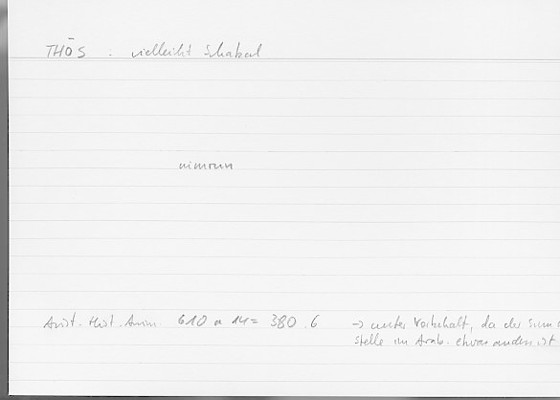 THŌS . vielleicht Schakal
nimrun
Arist. Hist. Anim. 610 a 14 = 380.6 → unter Vorbehalt, da der Sinn d
stelle im Arab. etwas anders ist